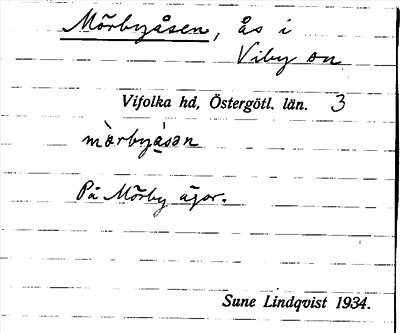 Mörbyåsen, ås i
Viby sn
Vifolka hd, Östergötl. län. 3
mörbyåsən
På Mörby ägor.
Sune Lindqvist 1934.